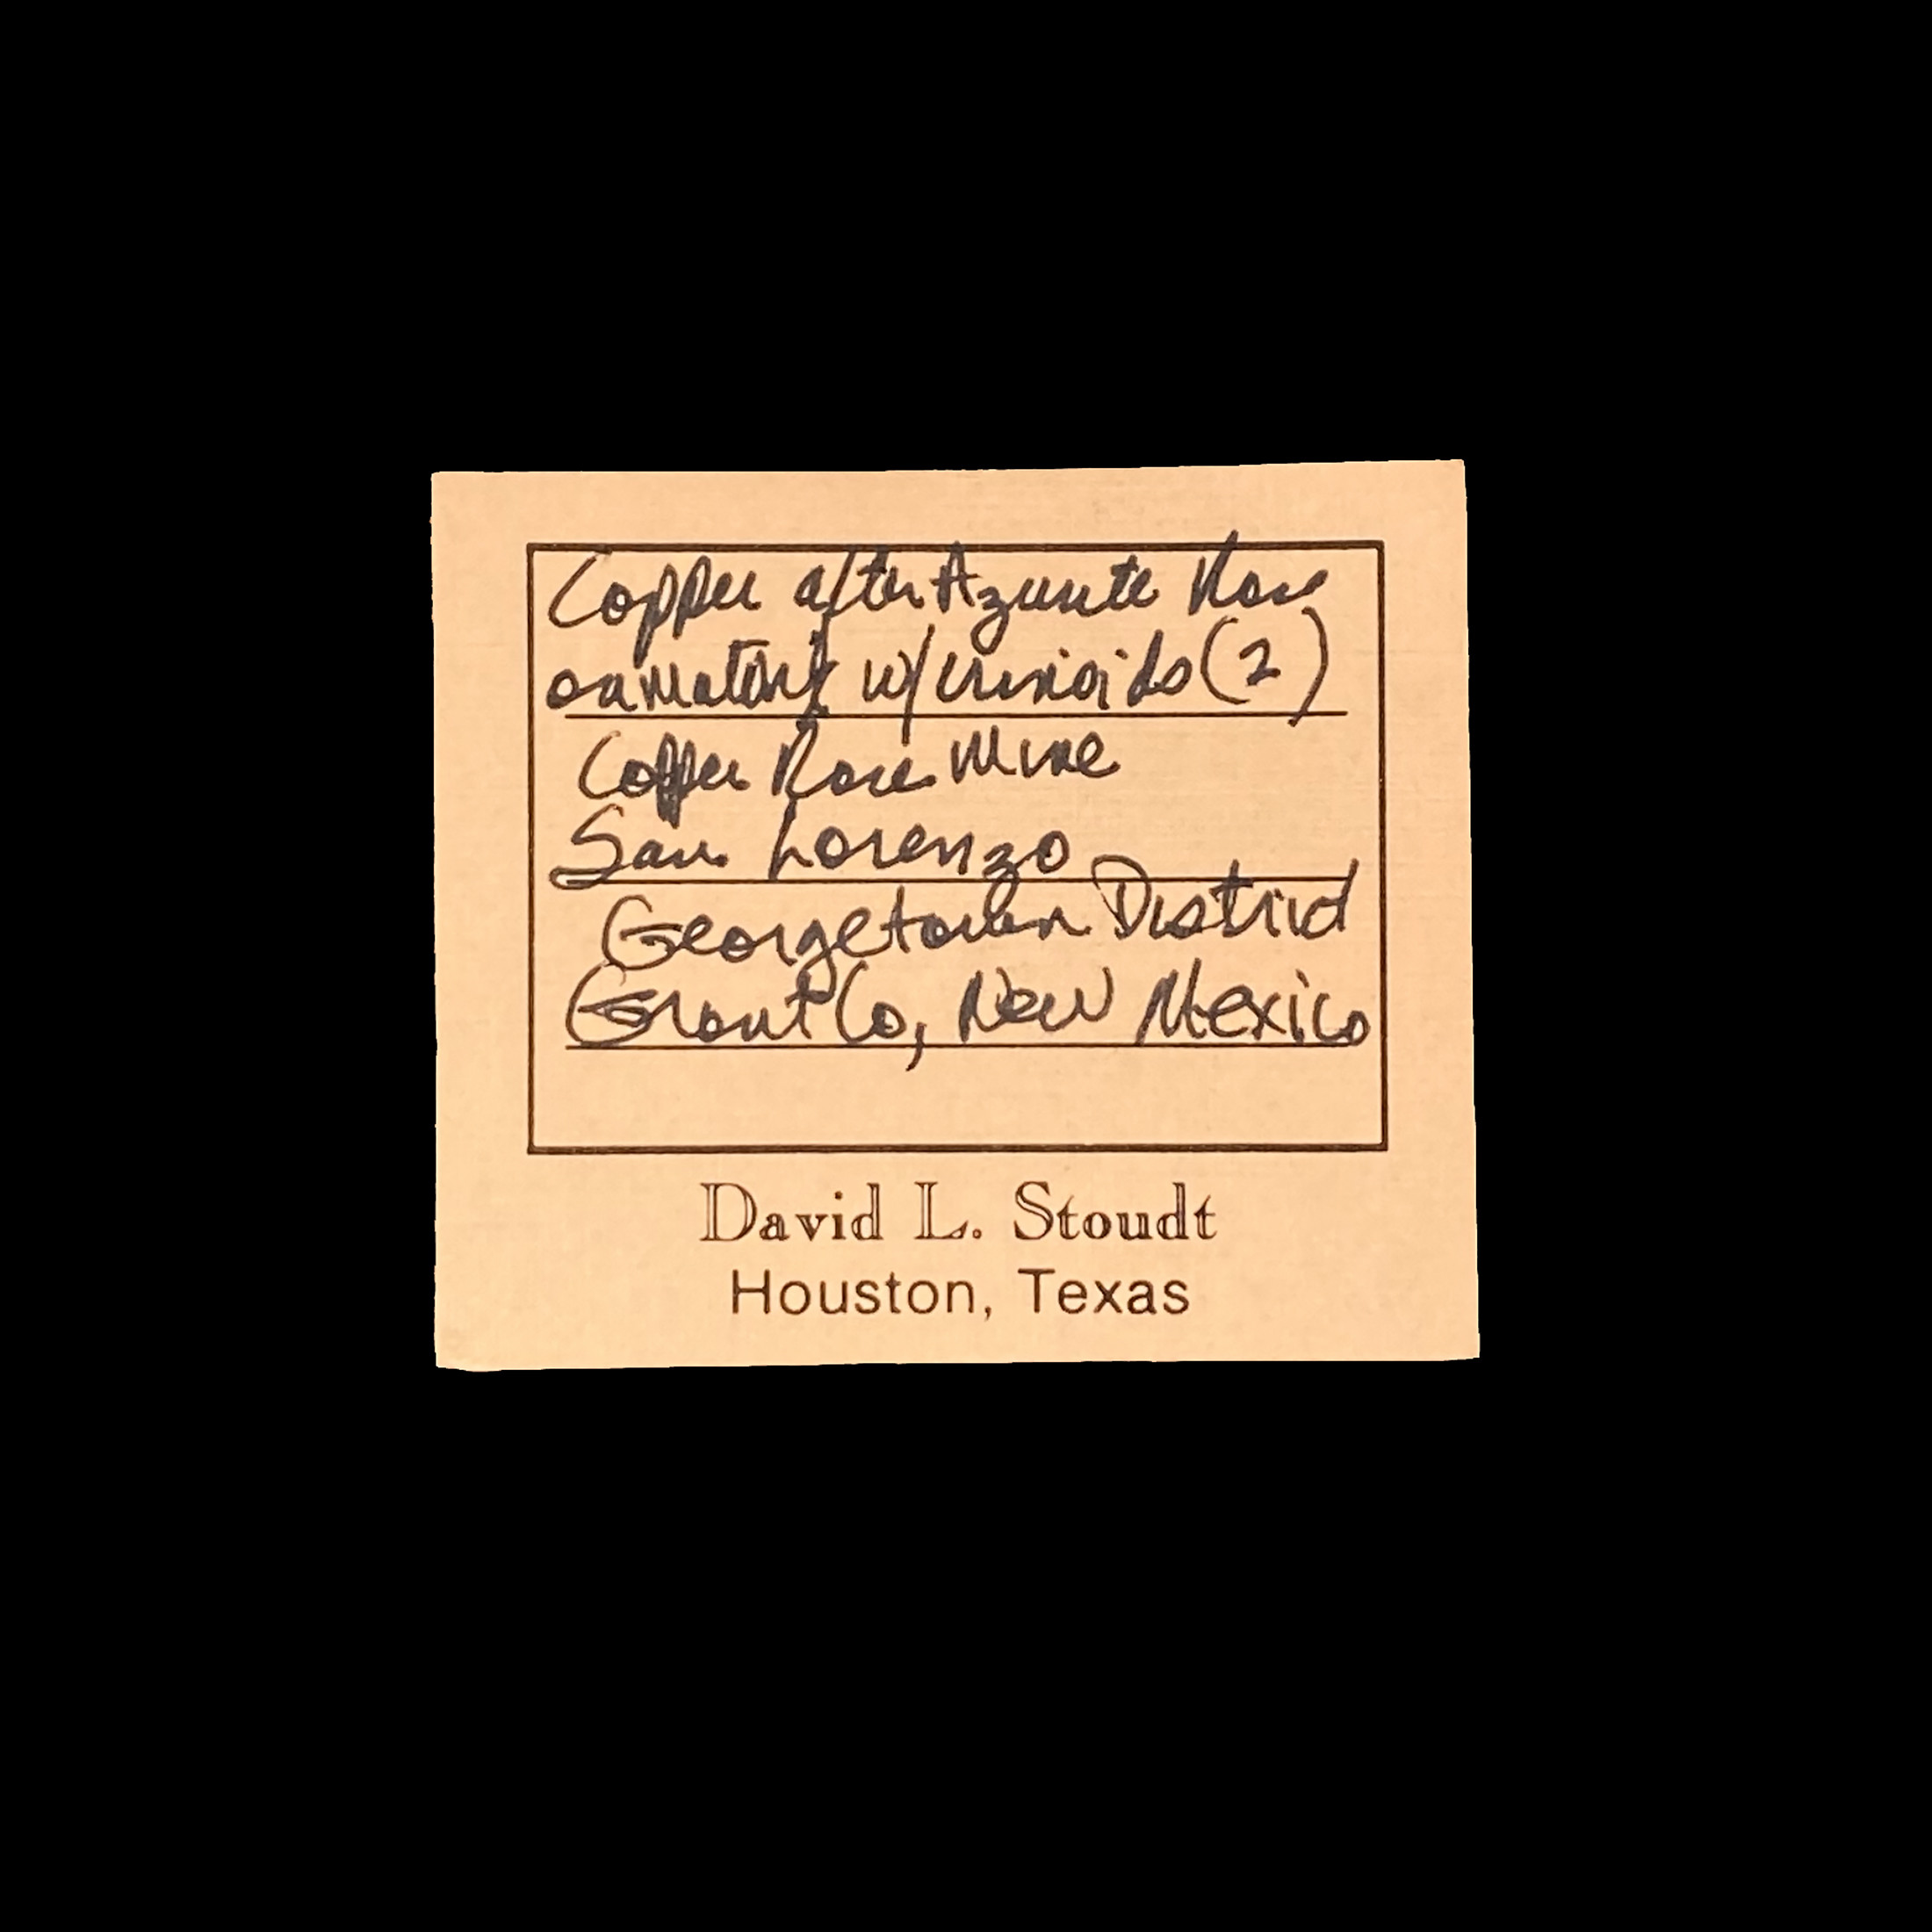 Copper after Azurite Rose
on Matrix w/crinoids (2)
Copper Rose Mine
San Lorenzo
Georgetown District
Grant Co, New Mexico
David L. Stoudt
Houston, Texas